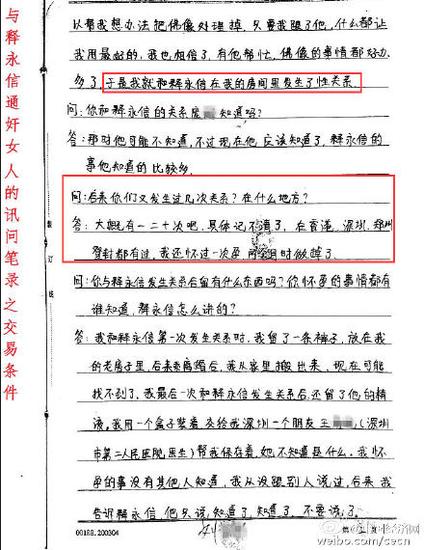 与释永信通奸女人的讯问笔录之交易条件
以帮我想办法把佛像处理掉,只要我跟了他,什么都让
我用最好的,我也相信了,有他帮忙,佛像的事情都好办
多了,于是我就和释永信在我的房间里发生了性关系.
问:你和释永信的关系 知道吗?
答:那时他可能不知道,不过现在他应该知道了,释永信的
事他知道的比较多.
问:后来你们又发生过几次关系?在什么地方?
答:大概有一二十次吧,具体记不清了,在香港、深圳、郑州
登封都有过,我还怀过一次孕 时做掉了.
问:你与释永信发生关系后留有什么东西吗?你怀孕的事情都有
谁知道,释永信怎么讲的?
答:我和释永信第一次发生关系时,我留了一条裤子,放在我
的老房子里,后来 离婚后,我从家里搬出来,现在可能
找不到了,我最后一次和释永信发生关系后,还留了他的精
液,我用一个盒子装着交给我深圳一个朋友王 (深圳
市第二人民医院医生)帮我保存着,她不知道是什么.我怀
孕的事没有其他人知道,我从没跟别人说过,后来我
告诉释永信,他只说,知道了,知道了,不要说了.
装订线
00168.200304
第 页
weibo.com/cecn